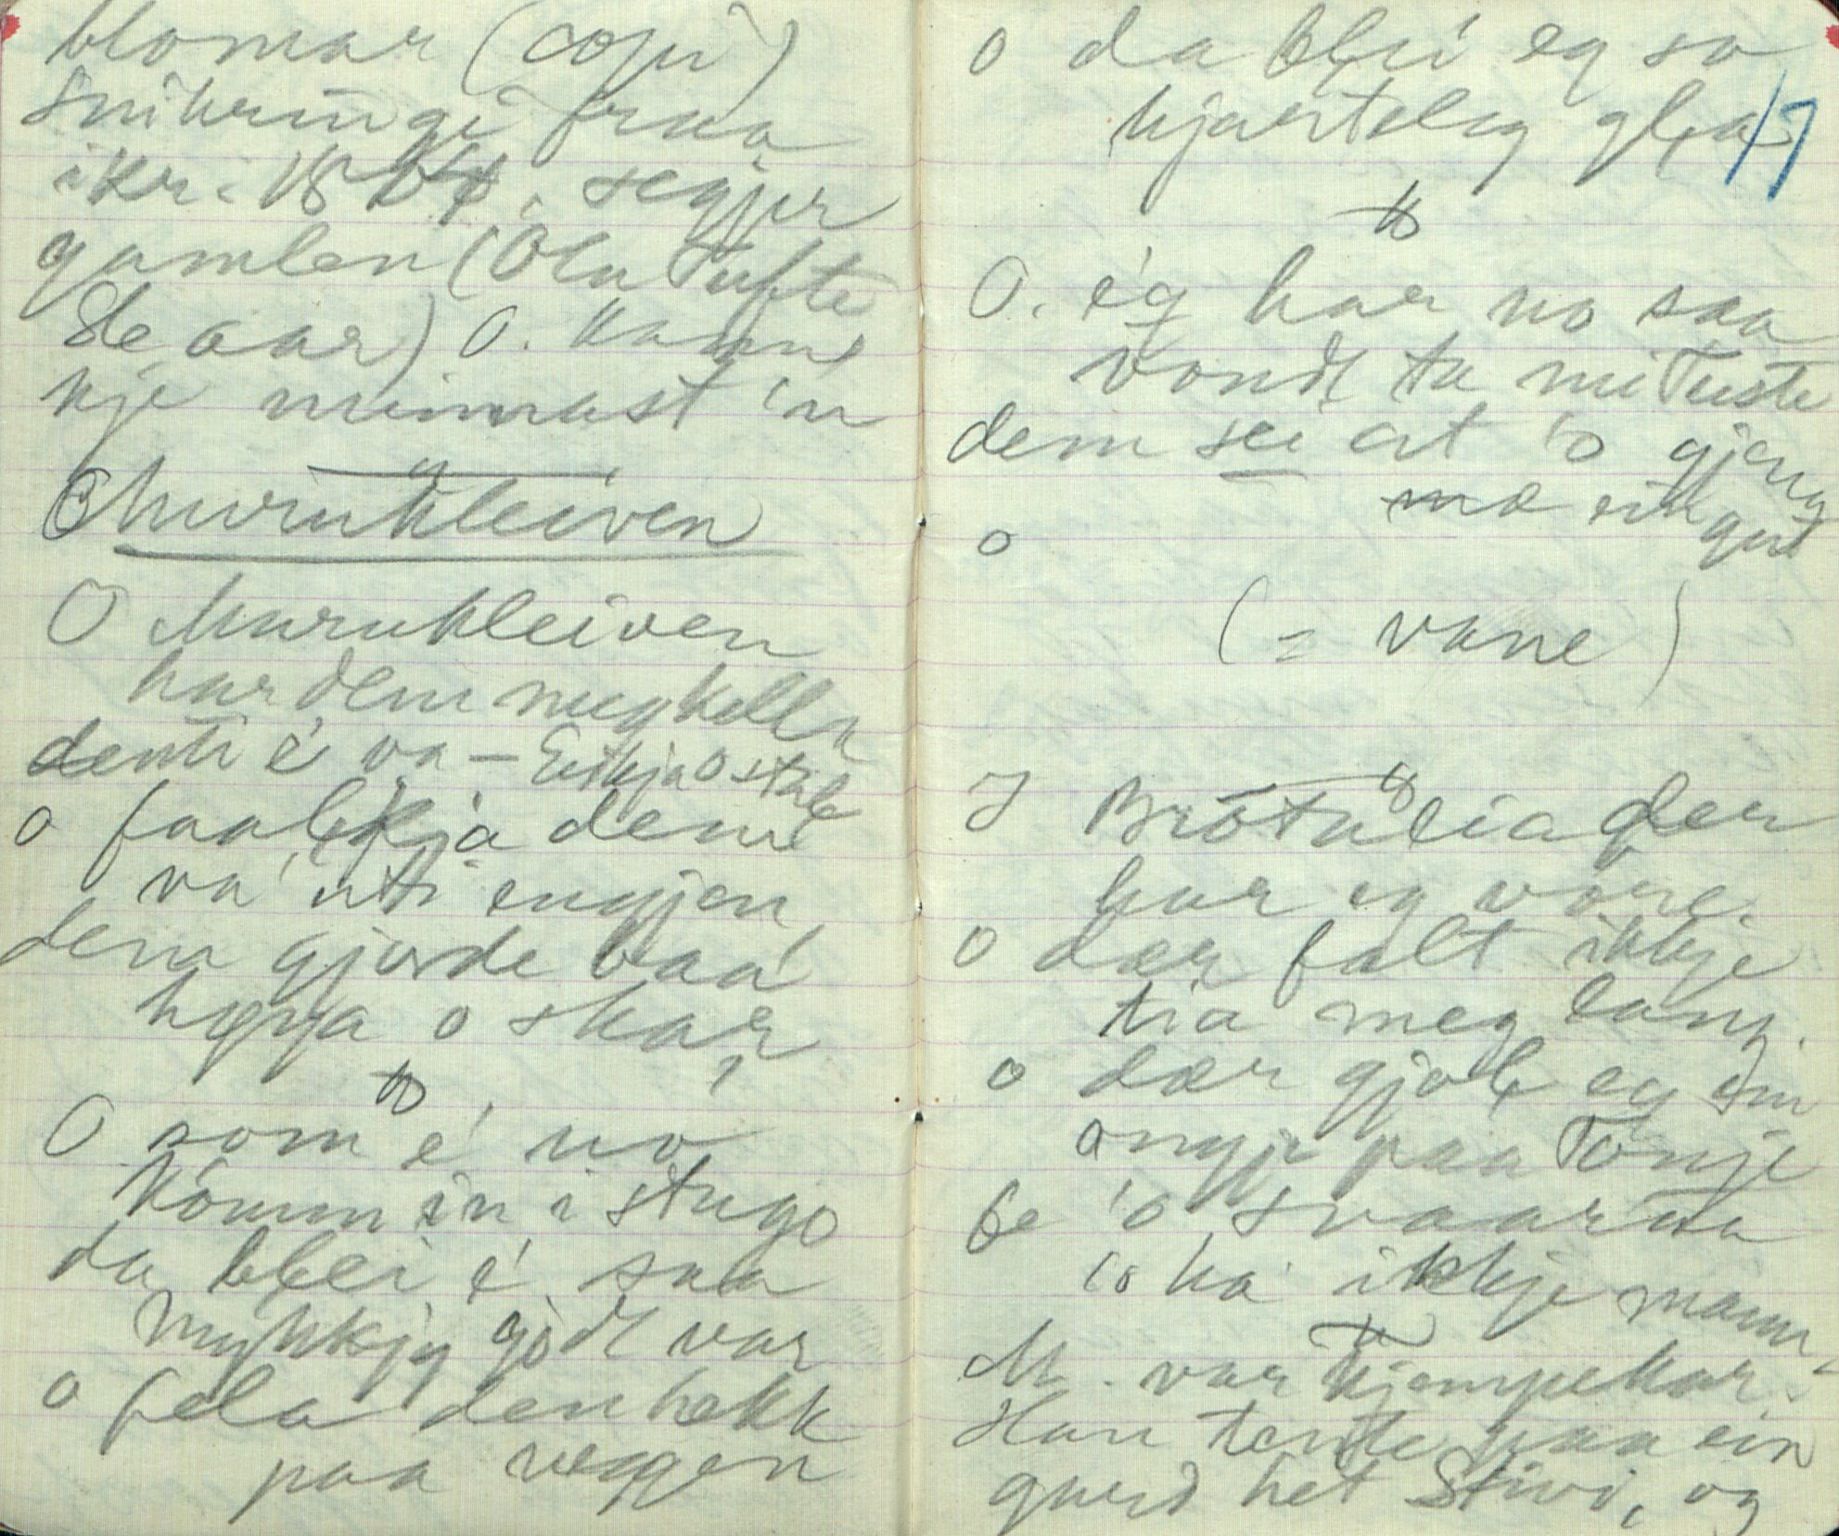 blomar (copi)
Snikringi fraa
ikr. 18 segjer
gamlen (Ola Tufte
80 aar) O. kann
kje minnast 'n
Murukleiven
O Murukleiven
har dem meg kella
denti é va – Eitkja o stäle
o faalekja dem
va' uti engjen
dem gjorde baa'
hogga o skar
O som é no
kômm in i stugo
da blei é saa
mykkjy gödt var
o fela den hekk
paa veggen
o da blei eg so
hjarteleg gla
17
O. ég har no saa
vondt ta mi Tuste
dem sei at 'o gjeng
mæ ein gut
o
(= vane)
I Brôtulia der
har eg vore.
o dær falt ikkje
tia meg lang.
o dær gjole eg ein
ongp paa Tônje
be 'o svaara
'o ha' ikkje mann
M. var kjempekar.
Han tente paa ein
gard het Stivi, og